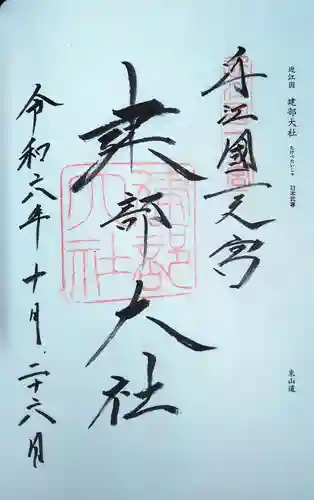 近江国 建部大社 たけべたいしゃ 日本武尊
東山道
近江國一之宮
建部大社
建部大社
令和六年十月二十六日